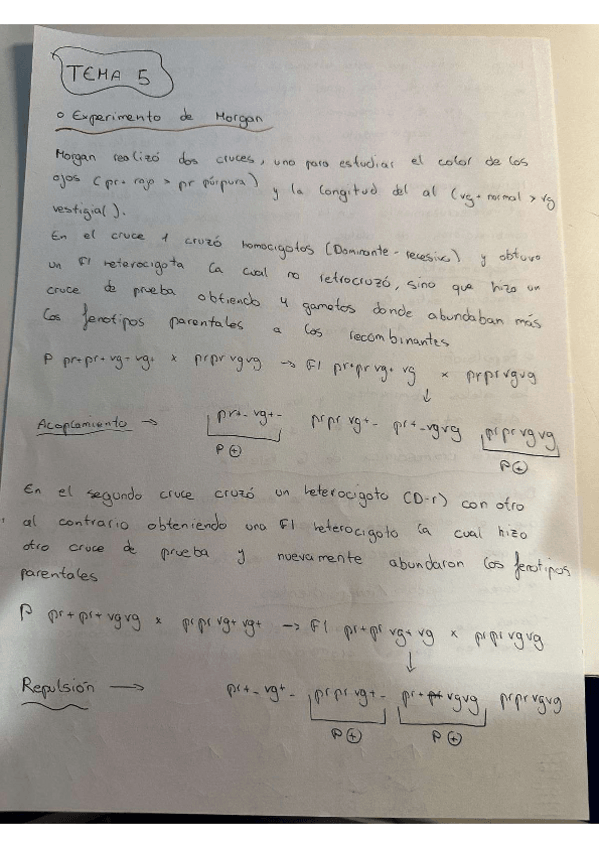 TEMA 5
o Experimento de Morgan
Morgan realizó dos cruces, uno para estudiar el color de los
ojos (pr+ rojo > pr púrpura) y la longitud del al (vg+ normal > vg
vestigial).
En el cruce 1 cruzó homocigotos (Dominante-recesivo) y obtuvo
un F1 heterocigota la cual no retrocruzó, sino que hizo un
cruce de prueba obtiendo 4 gametos donde abundaban más
los fenotipos parentales a los recombinantes
P pr+pr+ vg+vg+ x prpr vgvg → F1 pr+pr vg+ vg x prpr vgvg
↓
Acoplamiento → pr+- vg+- prpr vg+- pr+-vgvg prpr vgvg
P ⊕ P ⊕
En el segundo cruce cruzó un heterocigoto (D-r) con otro
al contrario obteniendo una F1 heterocigoto la cual hizo
otro cruce de prueba y nuevamente abundaron los fenotipos
parentales
P pr+pr+ vgvg x prpr vg+ vg+ → F1 pr+pr vg+ vg x prpr vgvg
↓
Repulsión → pr+- vg+- prpr vg+- pr+ vgvg prpr vgvg
P ⊕ P ⊕